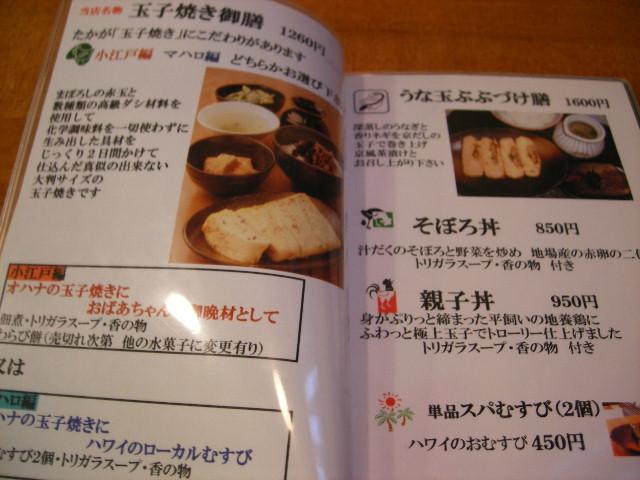 当店名物 玉子焼き御膳 1260円
たかが「玉子焼き」にこだわりがあります
小江戸編 マハロ編 どちらかお選び下さ
まぼろしの赤玉と
数種類の高級ダシ材料を
使用して
化学調味料を一切使わずに
生み出した具材を
じっくり2日間かけて
仕込んだ真似の出来ない
大判サイズの
玉子焼きです
小江戸編
オハナの玉子焼きに
おばあちゃん 御晩材として
佃煮・トリガラスープ・香の物
わらび餅(売切れ次第 他の水菓子に変更有り)
又は
ハロ編
ハナの玉子焼きに
ハワイのローカルむすび
むすび2個・トリガラスープ・香の物
うな玉ぶぶづけ膳 1600円
深蒸しのうなぎと
香りネギを京だしの
玉子で巻き上げ
京風茶漬けと
お召し上がり下さい
そぼろ丼 850円
汁だくのそぼろと野菜を炒め 地場産の赤卵の二
トリガラスープ・香の物 付き
親子丼 950円
身がぷりっと締まった平飼いの地養鶏に
ふわっと極上玉子でトローリー仕上げました
トリガラスープ・香の物 付き
単品スパむすび(2個)
ハワイのおむすび 450円